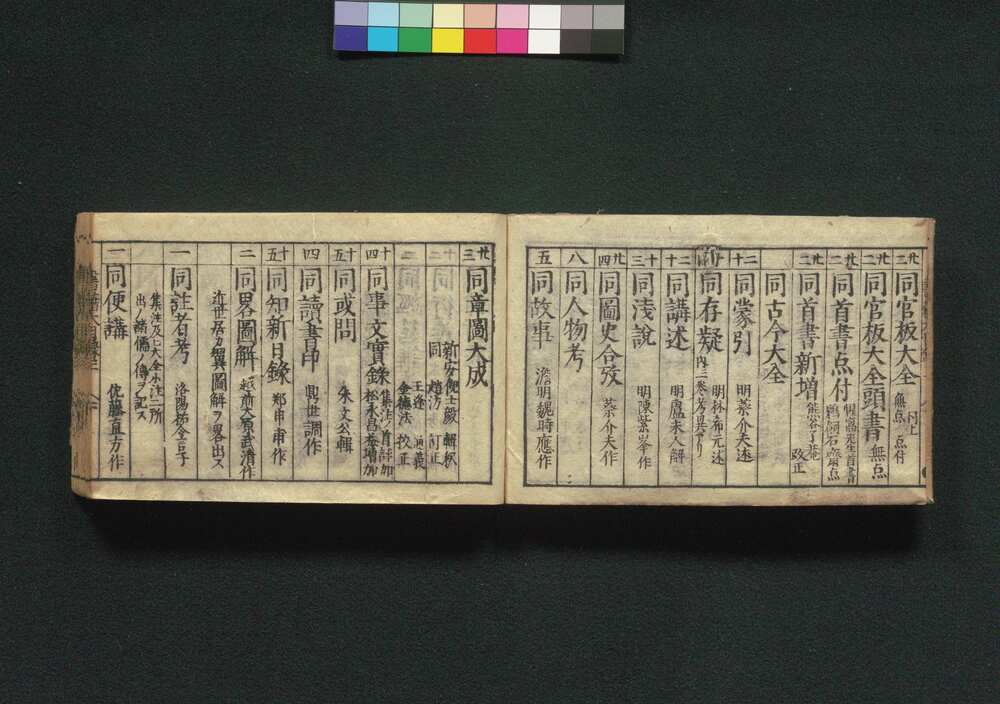 廿三 同官板大全 無点 点付
廿二 同官板大全頭書 無点
廿二 同首書点付 鵜飼石斎点
廿二 同首書新増 熊谷了庵 改正
同古今大全
二十 同蒙引 明蔡介夫述
同存疑 明林希元述
二十 同講述 明盧未人解
十三 同浅説 明陳紫峯作
廿四 同圖史合攷 蔡介夫作
八 同人物考
五 同故事 澹明魏時應作
廿三 同章圖大成 新安倪士毅 輯釈
同 趙汸 訂正
王逢
金徳法 校正
十四 同事文實録 松永昌
十五 同或問 朱文公輯
四 同讀書印 觀世調作
十五 同知新日録 郑申甫作
二 同畧圖解 越前大原武清作
近世居方異圖解ヲ畧出ス
一 同註者考 洛陽
集注及ヒ大全小注二所
出ノ諸儒ノ傳ヲ記ス
一 同便講 佐藤直方作